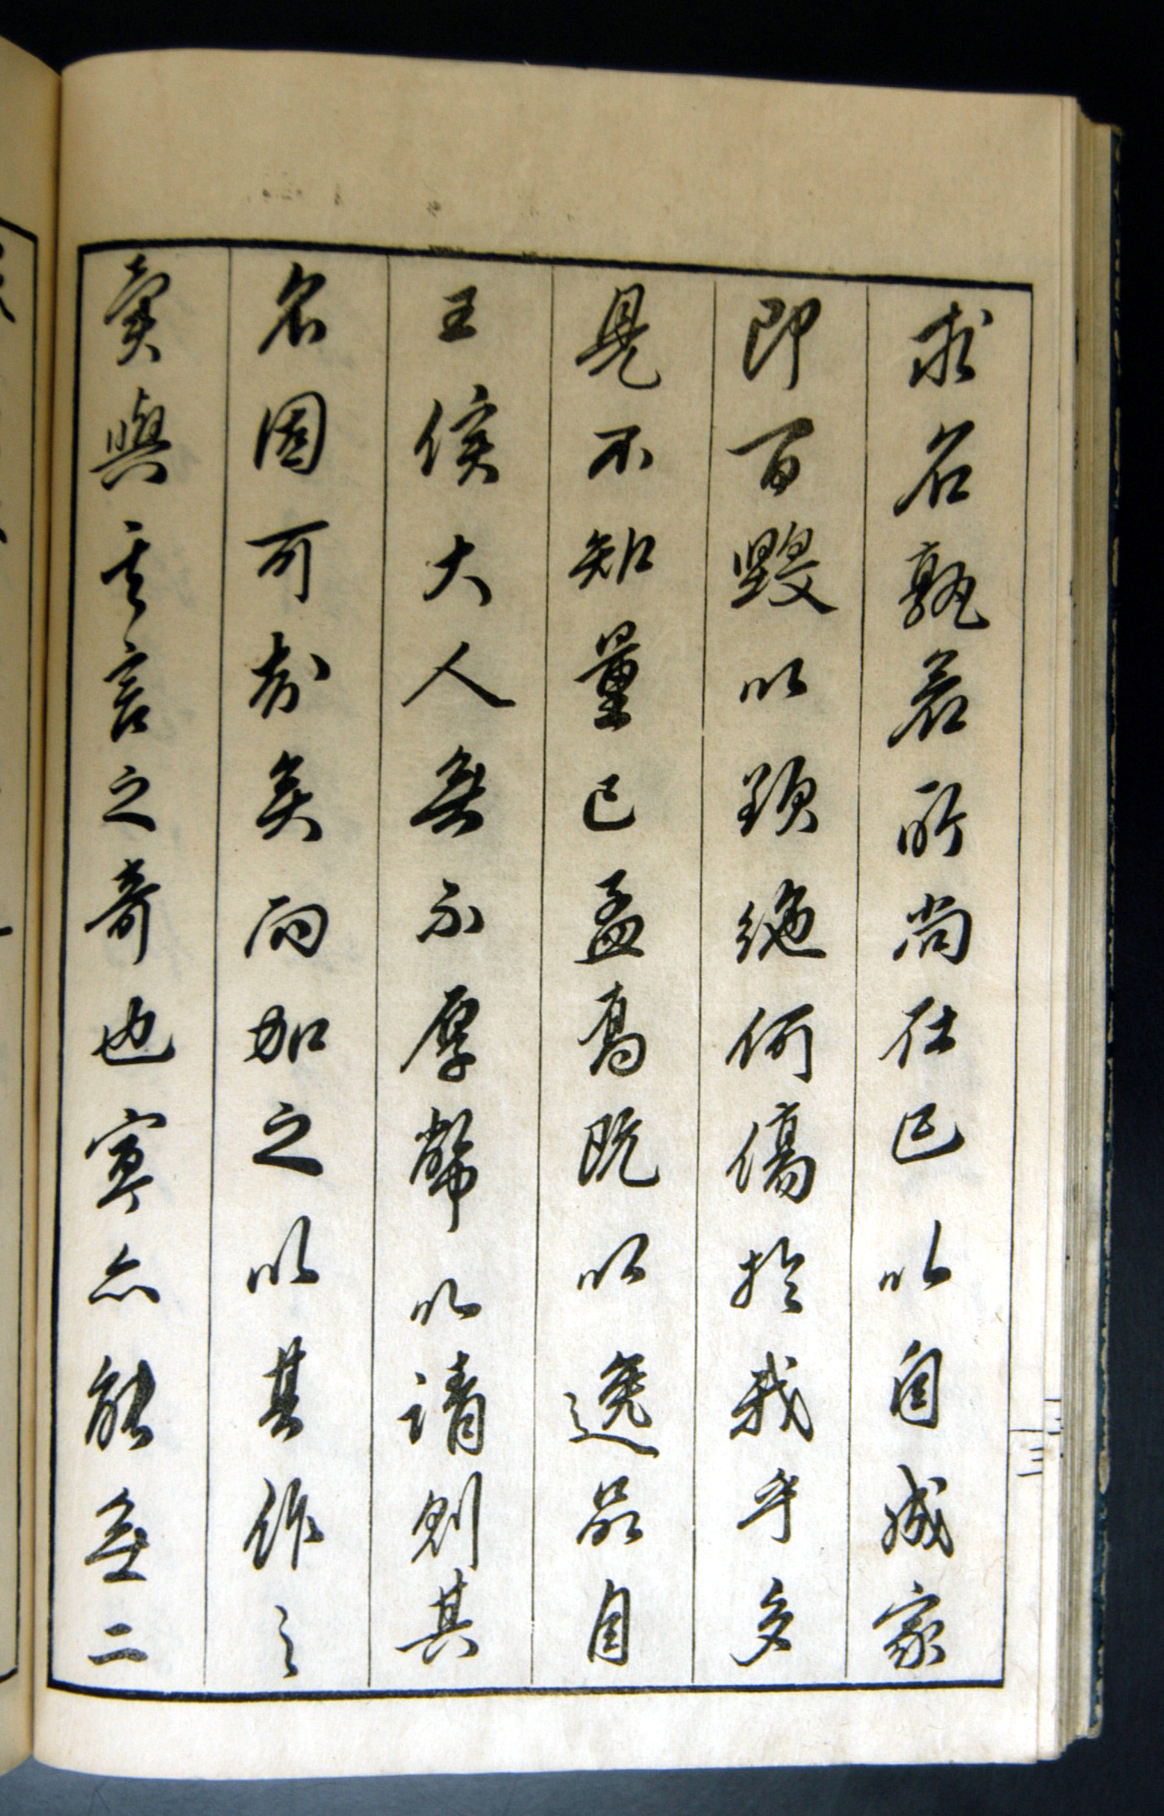 求名孰若所尚在已以自成家
即百毀以頭絶何傷於我乎多
見不知量已孟髙既以逸品自
王侯大人無不厚幣以請則其
名固可知矣而加之以其作之
實與其言之奇也寧亦能無二
三